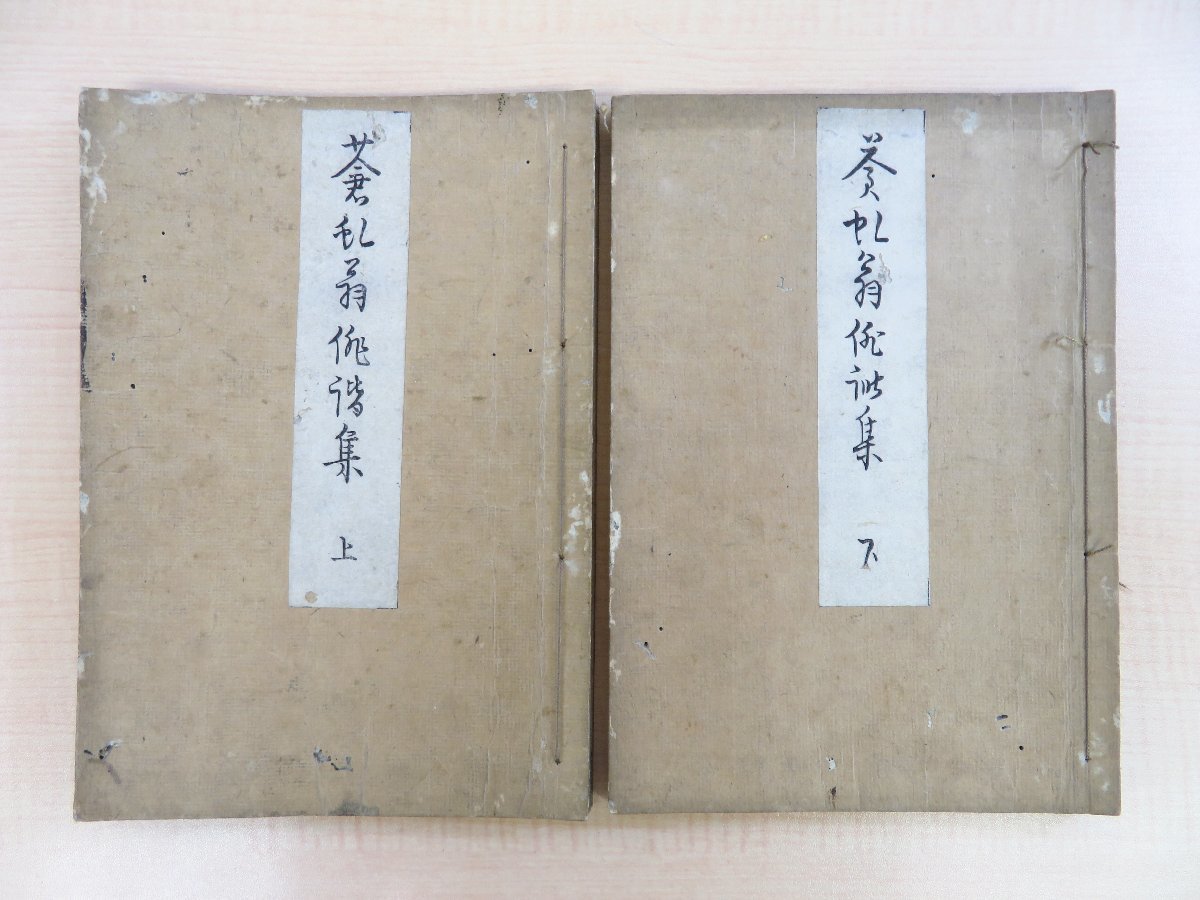 蒼虬翁俳諧集 上
蒼虬翁俳諧集 下